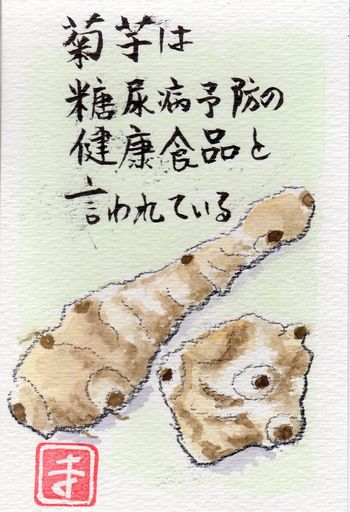 菊芋は
糖尿病予防の
健康食品と
言われている
ま